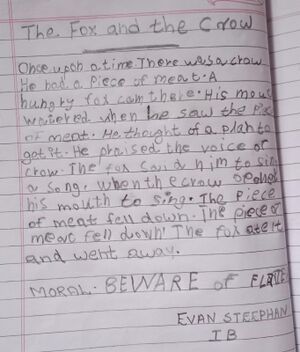 The Fox and the Crow
Once upon a time. There was a crow
He had a Piece of meat. A
hungry fox cam there. His mou
watered when he saw the Pie
of meat. He thought of a plan to
got it. He praised the voice of
crow. The fox said him to sin
a song. When the crow opened
his mouth to sing. The Piece
of meat fell down. The piece of
meat fell down! The fox ate it
and went away.
MORAL. BEWARE of FLATE
EVAN STEEPHAN
I B